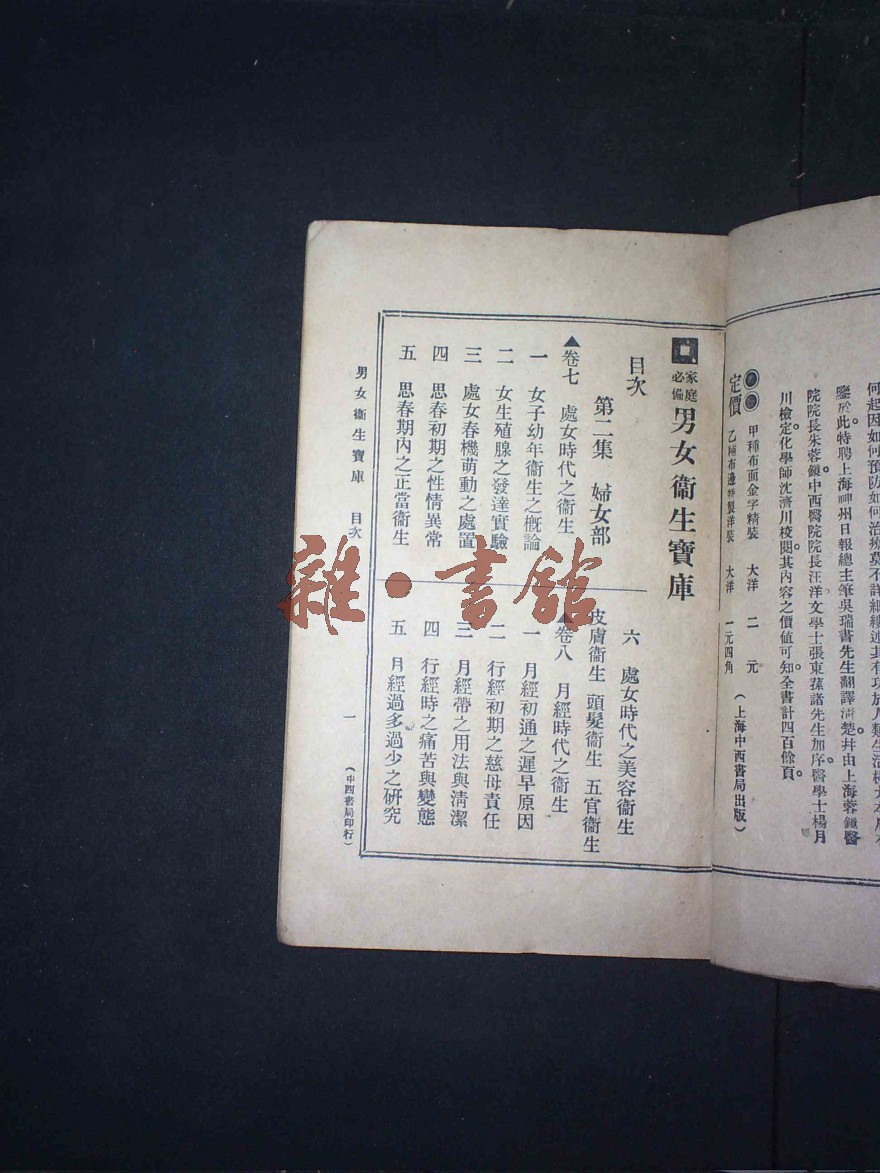 何起因如何預防如何治療莫不詳細縷述其有功於人類生活極大本局有
鑒於此特聘上海神州日報總主筆吳瑞書先生翻譯清楚幷由上海蓉鏡醫
院院長朱蓉鏡中西醫院院長汪洋文學士張東蓀諸先生加序醫學士楊月
川檢定化學師沈濟川校閱其內容之價值可知全書計四百餘頁。
定價
甲種布面金字精裝 大洋 二元
乙種布邊特製洋裝 大洋 一元四角
(上海中西書局出版)
家庭必備 男女衞生寶庫
目次
第二集 婦女部
▲卷七 處女時代之衞生
一 女子幼年衞生之槪論
二 女生殖腺之發達實驗
三 處女春機萌動之處置
四 思春初期之性情異常
五 思春期內之正當衞生
六 處女時代之美容衞生
皮膚衞生 頭髮衞生 五官衞生
▲卷八 月經時代之衞生
一 月經初通之遲早原因
二 行經初期之慈母責任
三 月經帶之用法與淸潔
四 行經時之痛苦與變態
五 月經過多過少之硏究
男女衞生寶庫 目次
一
(中西書局印行)
雜·書館